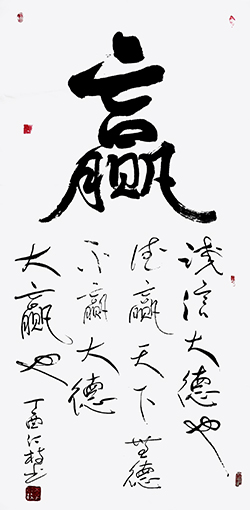 赢
诚信大德也
德赢天下無德
不赢大德
大赢也
丁酉仁枝书